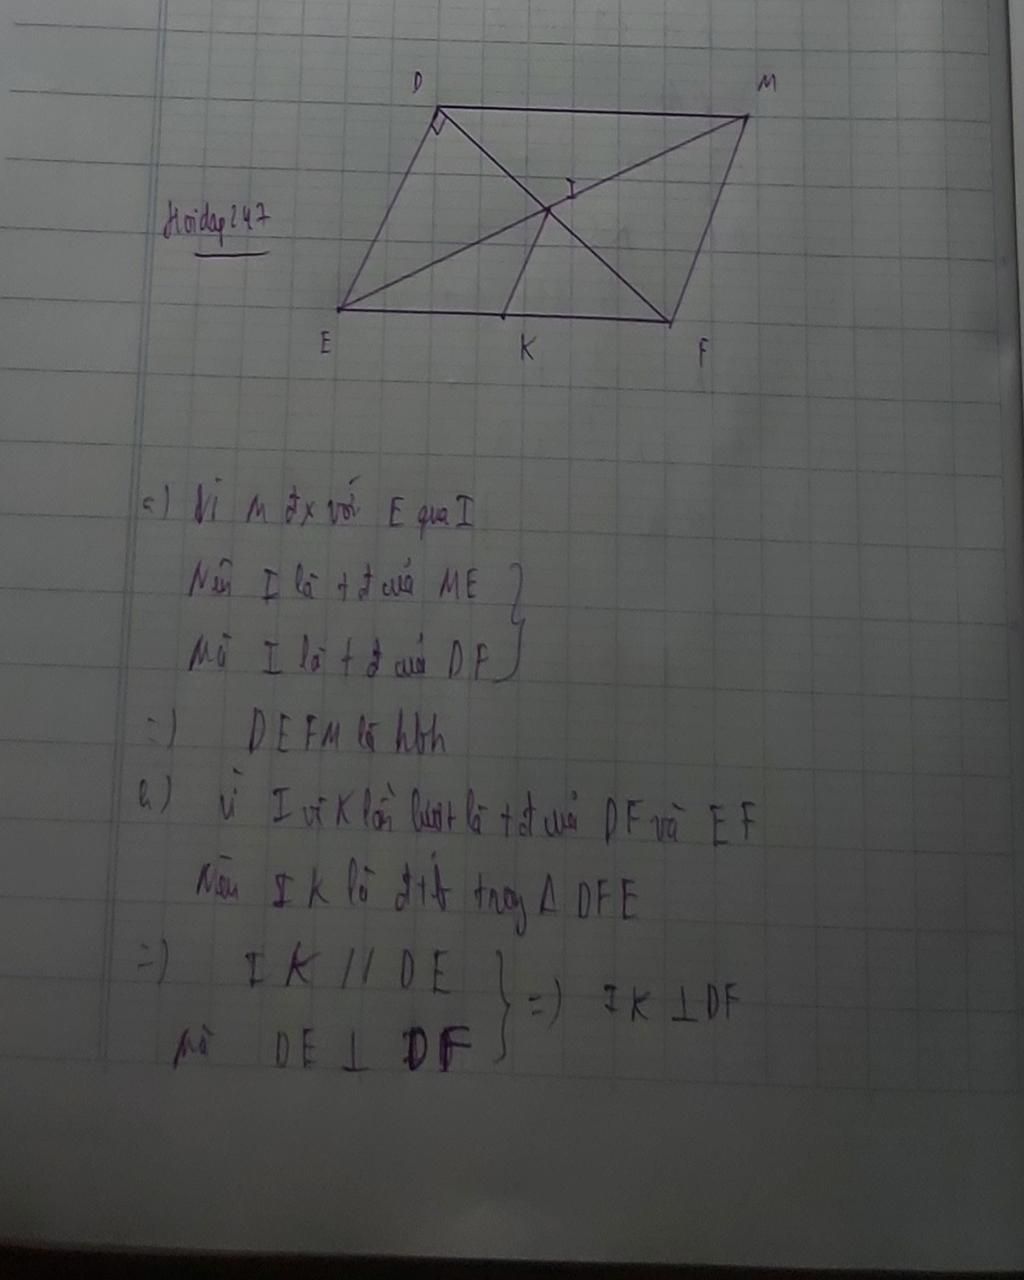 D
M
I
Hoidap247
E
K
F
a) Vì M đx với E qua I
Nên I là tđ của ME
Mà I là tđ của DF
=) DEFM là hbh
b) Vì I và K lần lượt là tđ của DF và EF
Nên IK là đtb trong Δ DFE
=) IK // DE
=) IK ⊥ DF
Mà DE ⊥ DF